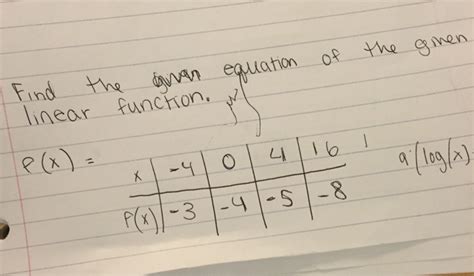 Find the equation of the given
linear function.
P(x) =
x | -4 | 0 | 4 | 16
P(x) | -3 | -4 | -5 | -8
a·(log(x)